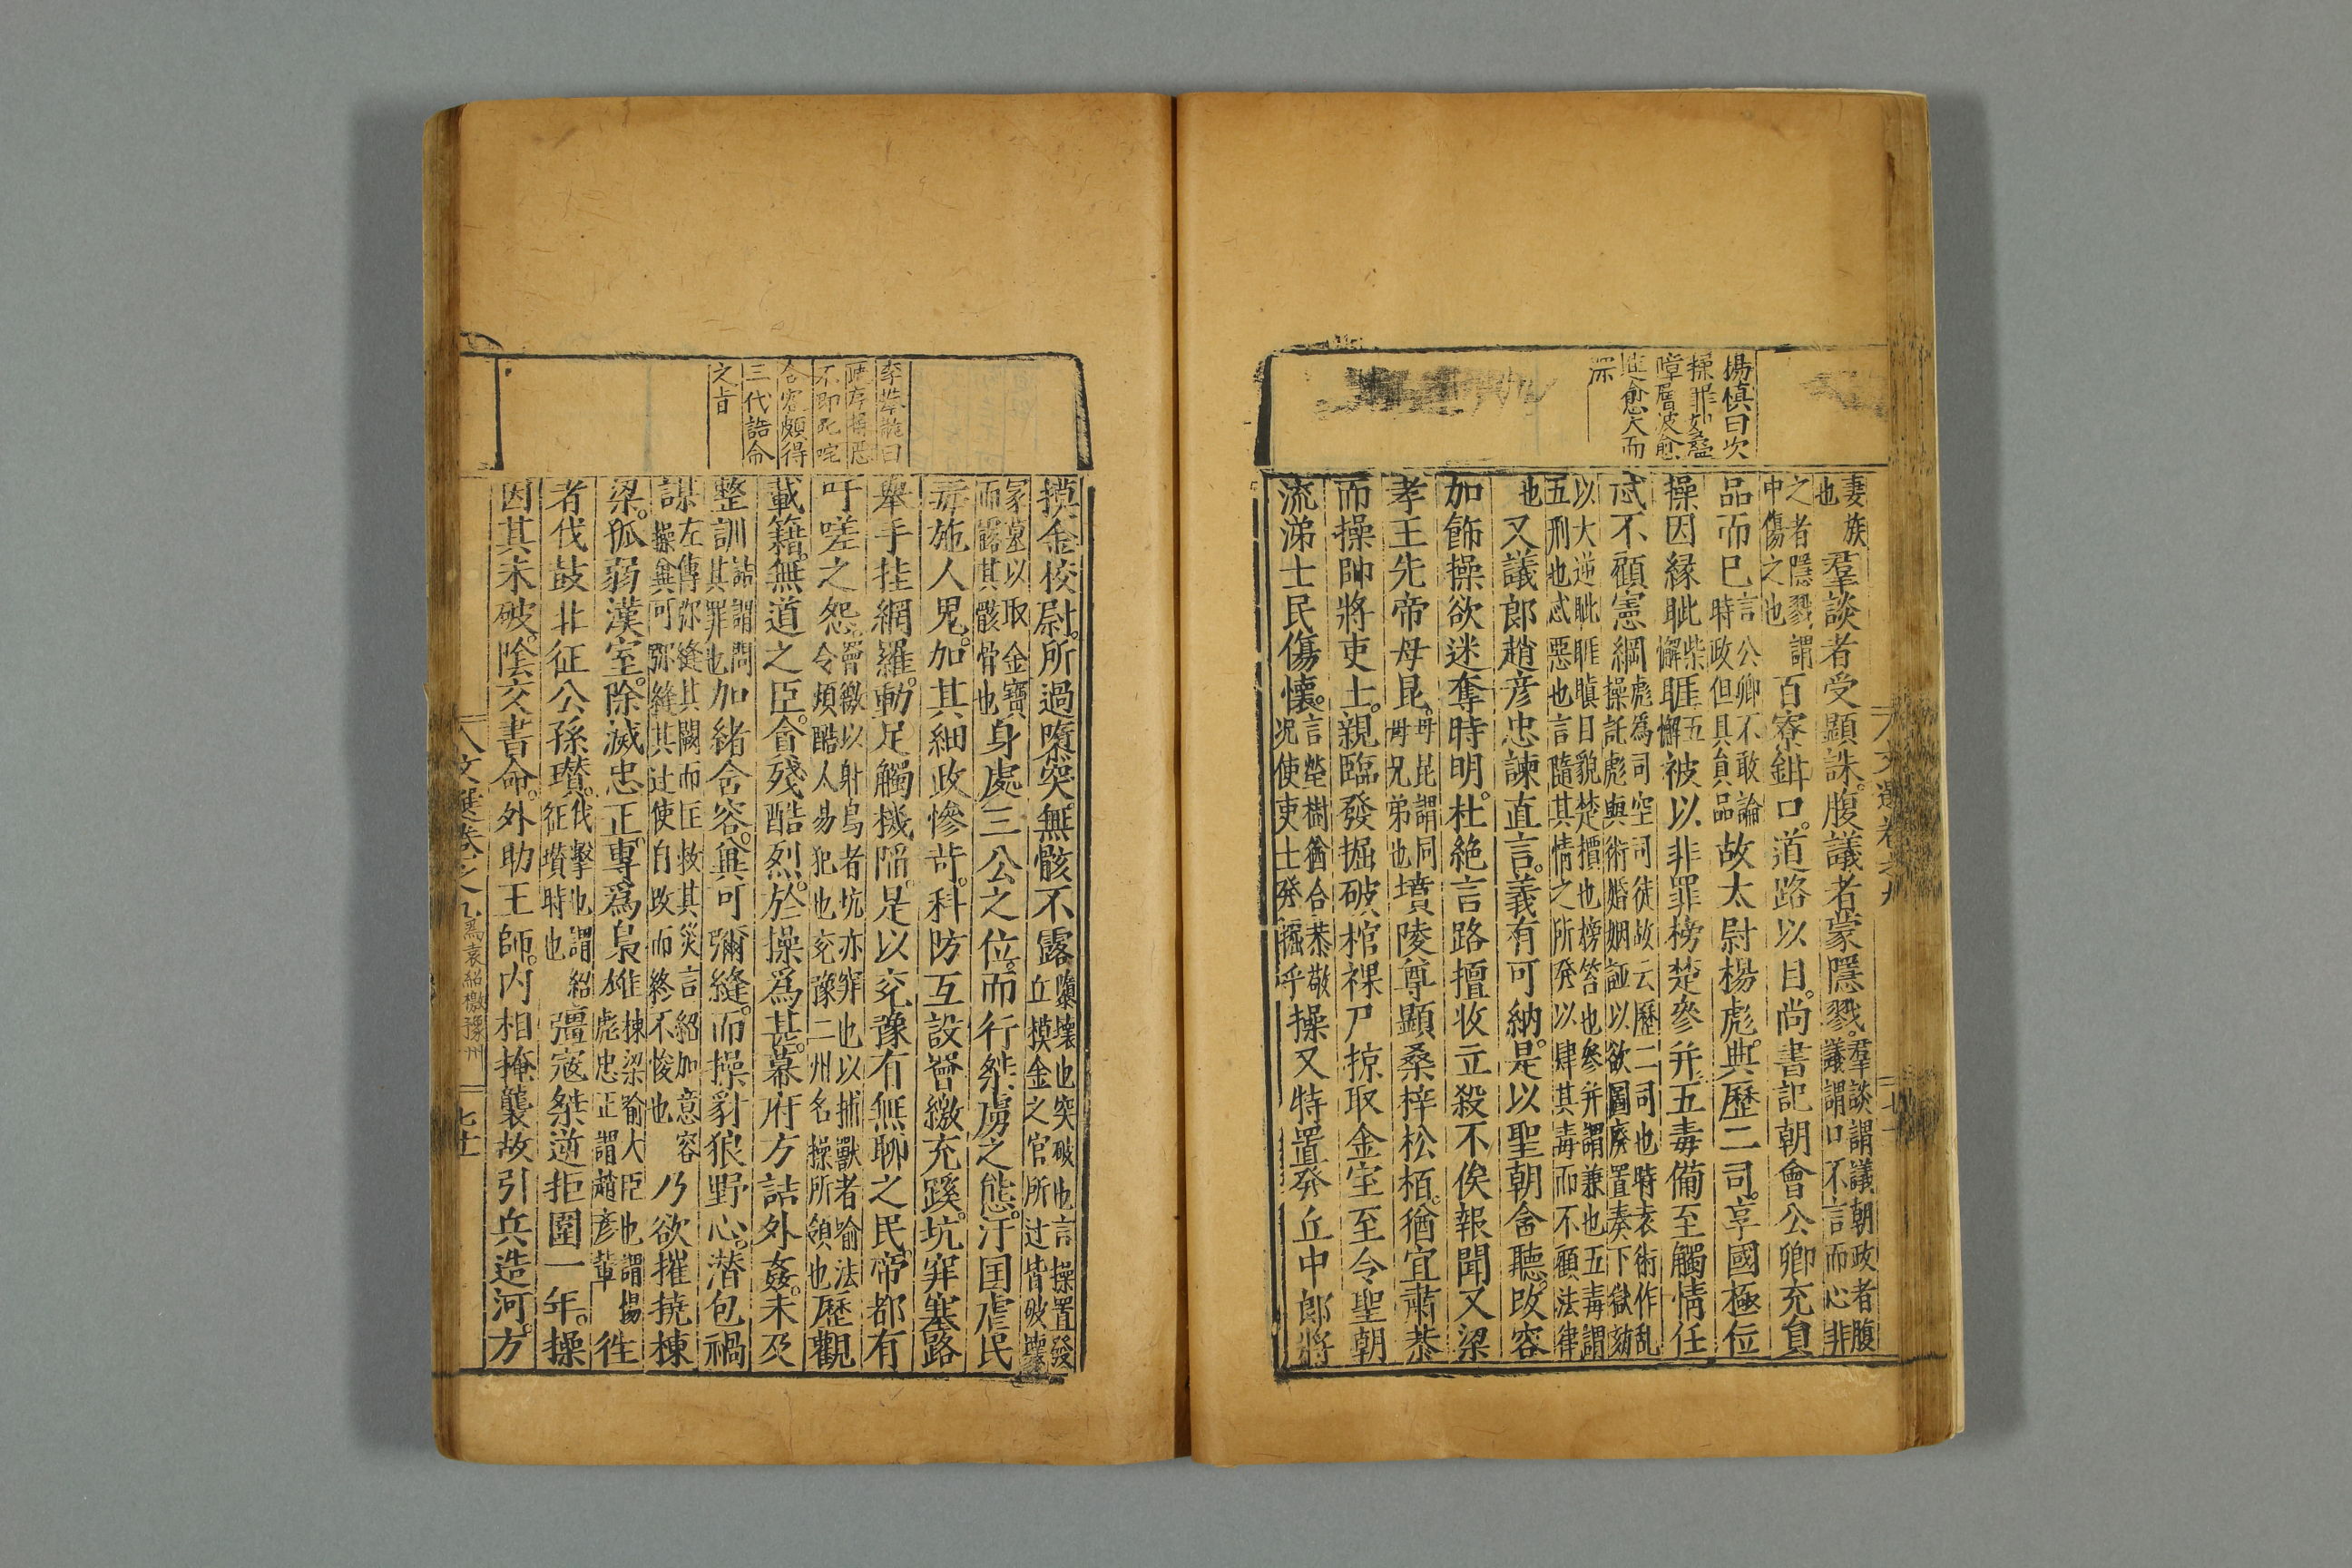 楊慎曰次
操罪如疊
嶂層波愈
進愈大而
深
妻族
也
羣談者受顯誅。腹議者蒙隱戮。
羣談謂議朝政者腹
議謂口不言而心非
之者隱戮謂
中傷之也
百寮鉗口。道路以目。尚書記朝會公卿充員
品而已
言公卿不敢論
時政但具員品
故太尉楊彪。典歷二司。享國極位
操因緣眦
柴
懈
睚
五
懈
被以非罪榜楚參并五毒備至觸情任
忒不顧憲綱
彪為司空司徒故云歷二司也時袁術作乱
操託彪與術婚姻誣以欲圖廢置奏下獄劾
以大逆眦睚瞋目貌楚檟也榜笞也參并謂兼也五毒謂
五刑也忒惡也言隨其情之所發以肆其毒而不顧法律
也
又議郎趙彦忠諫直言。義有可納。是以聖朝含聽。改容
加飾操欲迷奪時明。杜絶言路擅收立殺不俟報聞又梁
孝王先帝母昆。
母昆謂同
母兄弟也
墳陵尊顯桑梓松栢。猶宜肅恭
而操帥將吏士。親臨發掘破棺裸尸掠取金宝至令聖朝
流涕士民傷懷。
言塋樹猶合恭敬
况使吏士發掘乎
操又特置發丘中郎將
李
不即死咤
含容頗得
三代誥命
之旨
摸金校尉。所過隳突。無骸不露
隳壞也突破也言操置發
丘摸金之官所过皆破壞
冢墓以取金寶
而露其骸骨也
身處三公之位。而行桀虜之態。汙国虐民
毒施人鬼。加其細政慘苛。科防互設罾繳充蹊。坑穽塞路
舉手挂網羅。動足觸機陷。是以兖豫有無聊之民。帝都有
吁嗟之怨
罾繳以射鳥者坑亦穽也以捕獸者喻法
令煩酷人易犯也兖豫二州名操所領也
歷觀
載籍。無道之臣。貪殘酷烈。於操爲甚。幕府方詰外姦。未及
整訓
詰謂問
其罪也
加緒含容。兾可彌縫。而操豺狼野心。潛包禍
謀
左傳弥縫其闕而匡救其災言紹加意容
操兾可弥縫其过使自改而終不悛也
乃欲摧撓棟
梁。孤弱漢室。除滅忠正。專爲梟雄
棟梁喻大臣也謂楊
彪忠正謂趙彦輩
徃
者伐鼓北征公孫瓚。
伐擊也謂紹
征瓚時也
彊寇桀逆拒圍一年。操
因其未破。陰交書命。外助王師。内相掩襲故引兵造河。方
文選卷之九
爲袁紹檄豫州
七十一